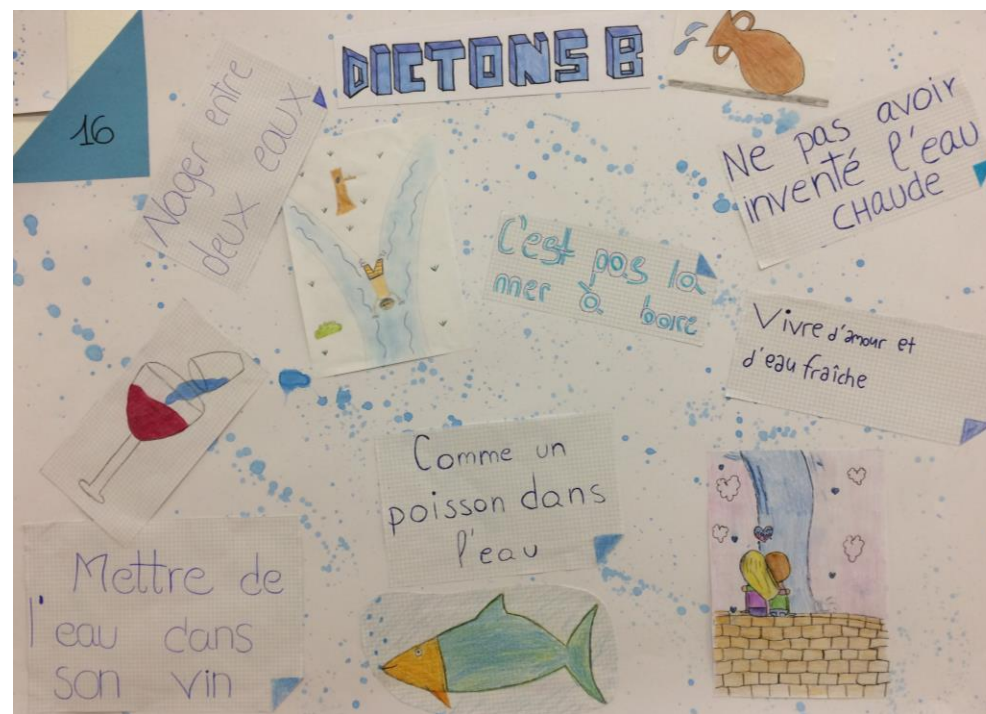 DICTONS B
16
Nager entre
deux eaux
Ne pas avoir
inventé l'eau
CHaude
C'est pas la
mer à boire
Vivre d'amour et
d'eau fraîche
Comme un
poisson dans
l'eau
Mettre de
l'eau dans
son vin